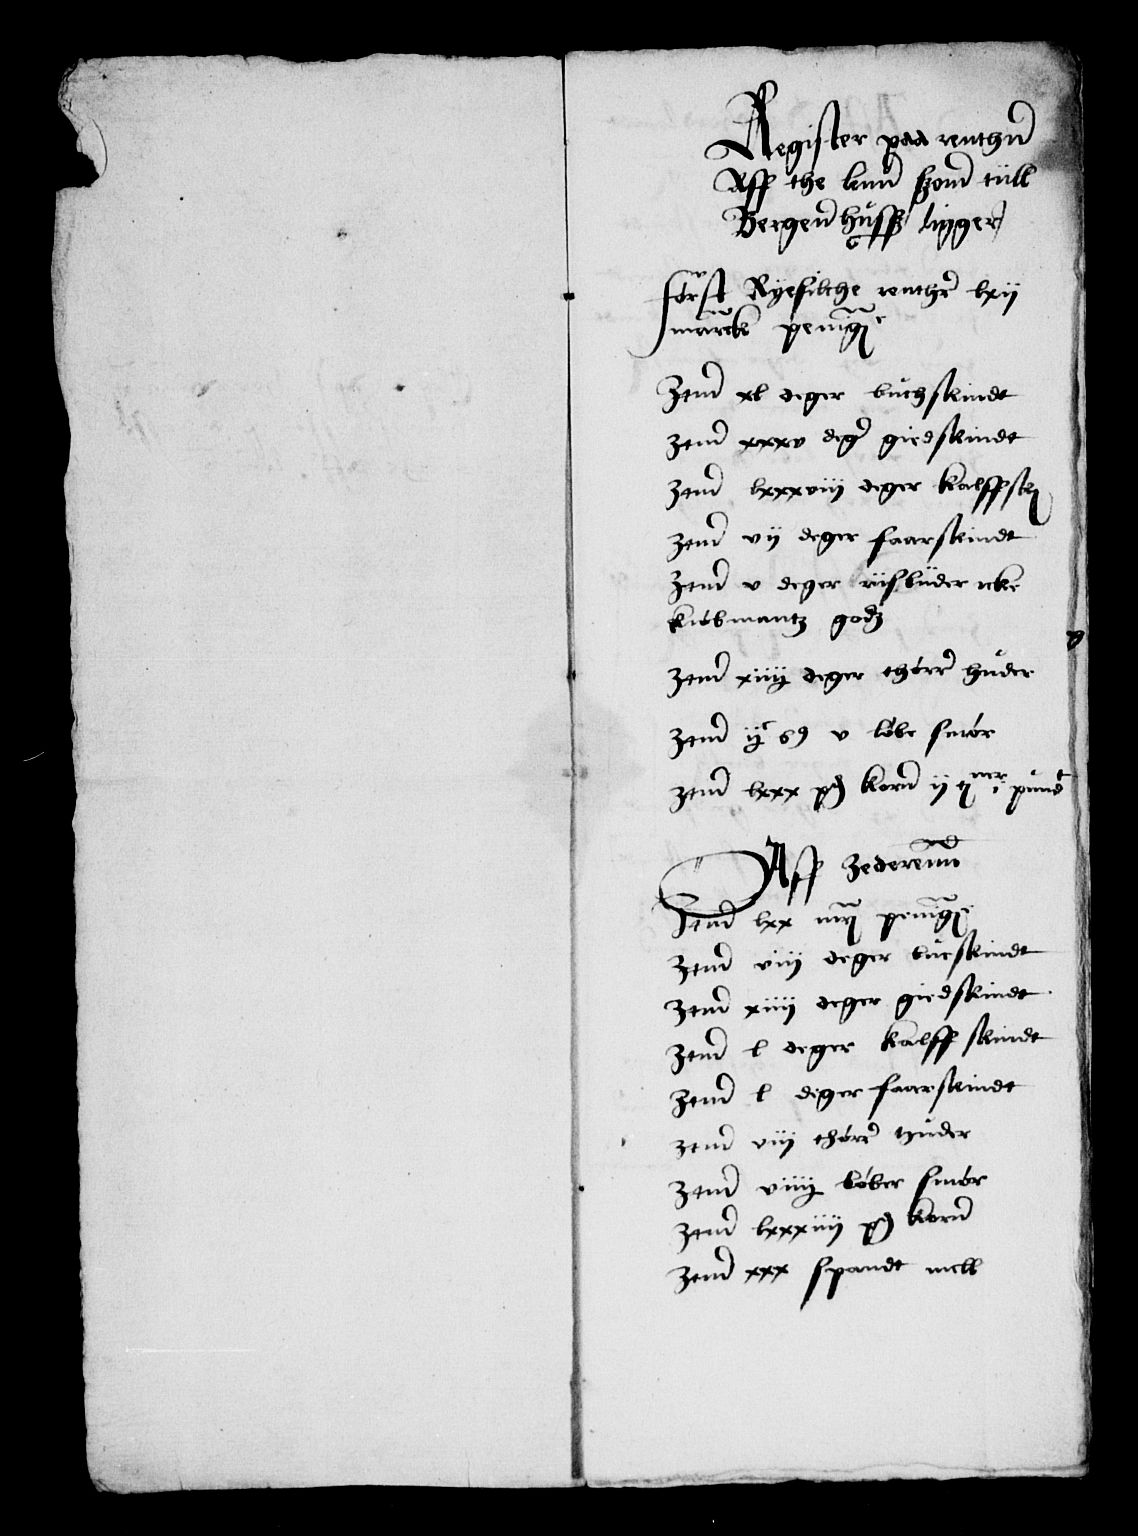 Register paa renthen
Aff the leen szom tiill
Bergenhuffz liigger
först Ryefilche renther lxij
marcke peninge
Item xl deger buchskindt
Item xxxv deger giedskindt
Item lxxxviij deger kalffsk
Item vij deger faarskindt
Item v deger icke
kiöbmantz godz
Item xiiij deger thörre huder
Item ijc 69 v löbe smör
Item lxxx pd korn ij tner i pundt
Aff
Item lxx mc peninge
Item viij deger bucskindt
Item xiiij deger giedskindt
Item l deger kalff skindt
Item l deger faarskindt
Item viij thörre huder
Item viiij löber smör
Item lxxxiiij pd korn
Item xxx spandt mell